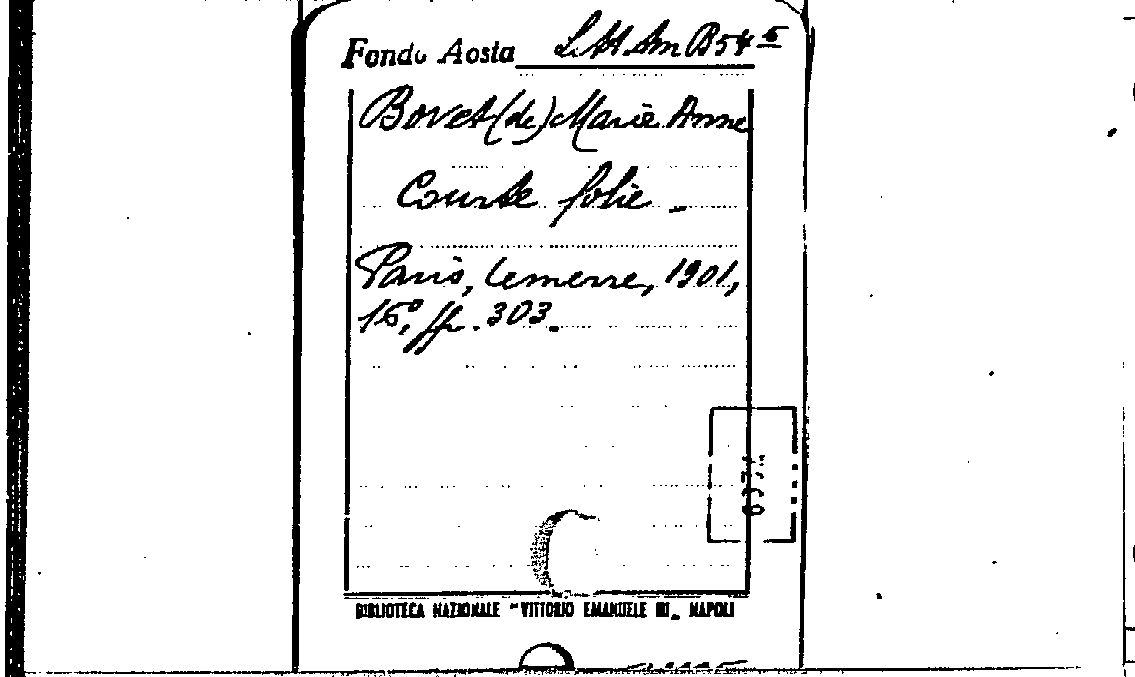 Fondo Aosta
Bovet (de) Marie Anne
Courte folie –
Paris, Lemerre, 1901,
16°, pp. 303.
BIBLIOTECA NAZIONALE "VITTORIO EMANUELE III„ NAPOLI